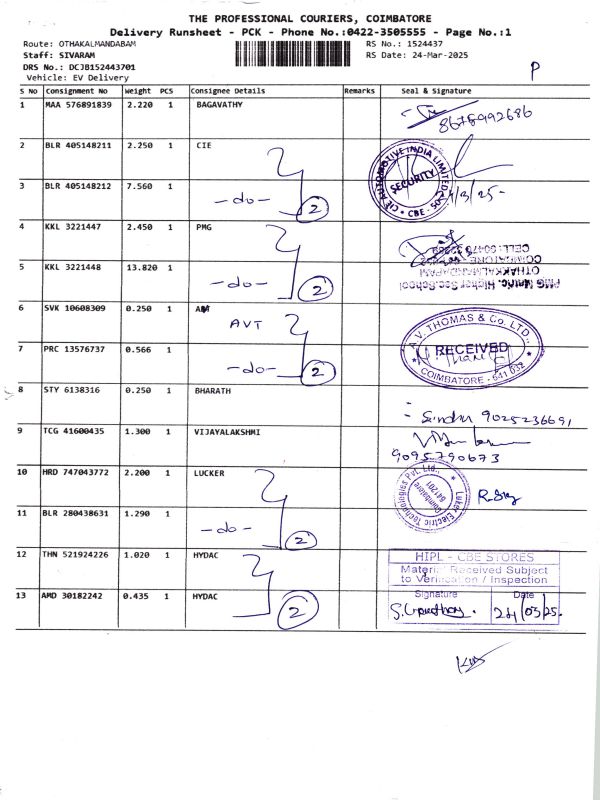 THE PROFESSIONAL COURIERS, COIMBATORE
Delivery Runsheet - PCK - Phone No.:0422-3505555 - Page No.:1
Route: OTHAKALMANDABAM
RS No.: 1524437
Staff: SIVARAM
RS Date: 24-Mar-2025
DRS No.: DCJB152443701
Vehicle: EV Delivery
P
S No Consignment No Weight PCS Consignee Details Remarks Seal & Signature
1 MAA 576891839 2.220 1 BAGAVATHY
8678992686
2 BLR 405148211 2.250 1 CIE
CIE AUTOMOTIVE INDIA LIMITED
SECURITY
CBE - 50
3 BLR 405148212 7.560 1 -do- 2
4 KKL 3221447 2.450 1 PMG
5 KKL 3221448 13.820 1 -do- 2
PMG Matric. Higher Sec. School
OTHAKKALMANDAPAM
6 SVK 10608309 0.250 1
AVT
A.V. THOMAS & Co. LTD.,
RECEIVED
COIMBATORE - 641 032
7 PRC 13576737 0.566 1 -do- 2
8 STY 6138316 0.250 1 BHARATH
Sindhu 9025236691
9 TCG 41600435 1.300 1 VIJAYALAKSHMI
9095790673
10 HRD 747043772 2.200 1 LUCKER
Luker Electric Technologies Pvt. Ltd.,
Coimbatore
641201
11 BLR 280438631 1.290 1 -do- 2
12 THN 521924226 1.020 1 HYDAC
HIPL - CBE STORES
Material Received Subject
to Verification / Inspection
Signature Date
13 AMD 30182242 0.435 1 HYDAC 2
24/03/25.